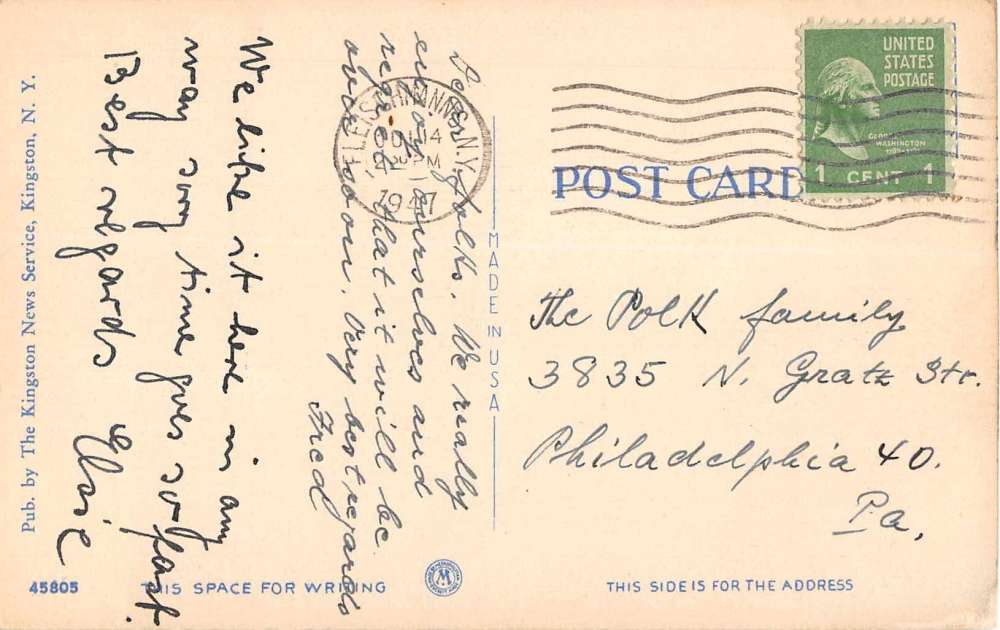 UNITED
STATES
POSTAGE
GEORGE
WASHINGTON
1 CENT 1
FLEISCHMANNS, N.Y.
14
PM
1947
POST CARD
Dear folks. We really
enjoy ourselves and
regret, that it will be
over soon. Very best regards
Fred
We like it here in any
way time goes so fast.
Best regards Elsie
The Polk family
3835 N. Gratz Str.
Philadelphia 40.
Pa.
MADE IN USA
Pub. by The Kingston News Service, Kingston, N. Y.
45805
THIS SPACE FOR WRITING
M
THIS SIDE IS FOR THE ADDRESS